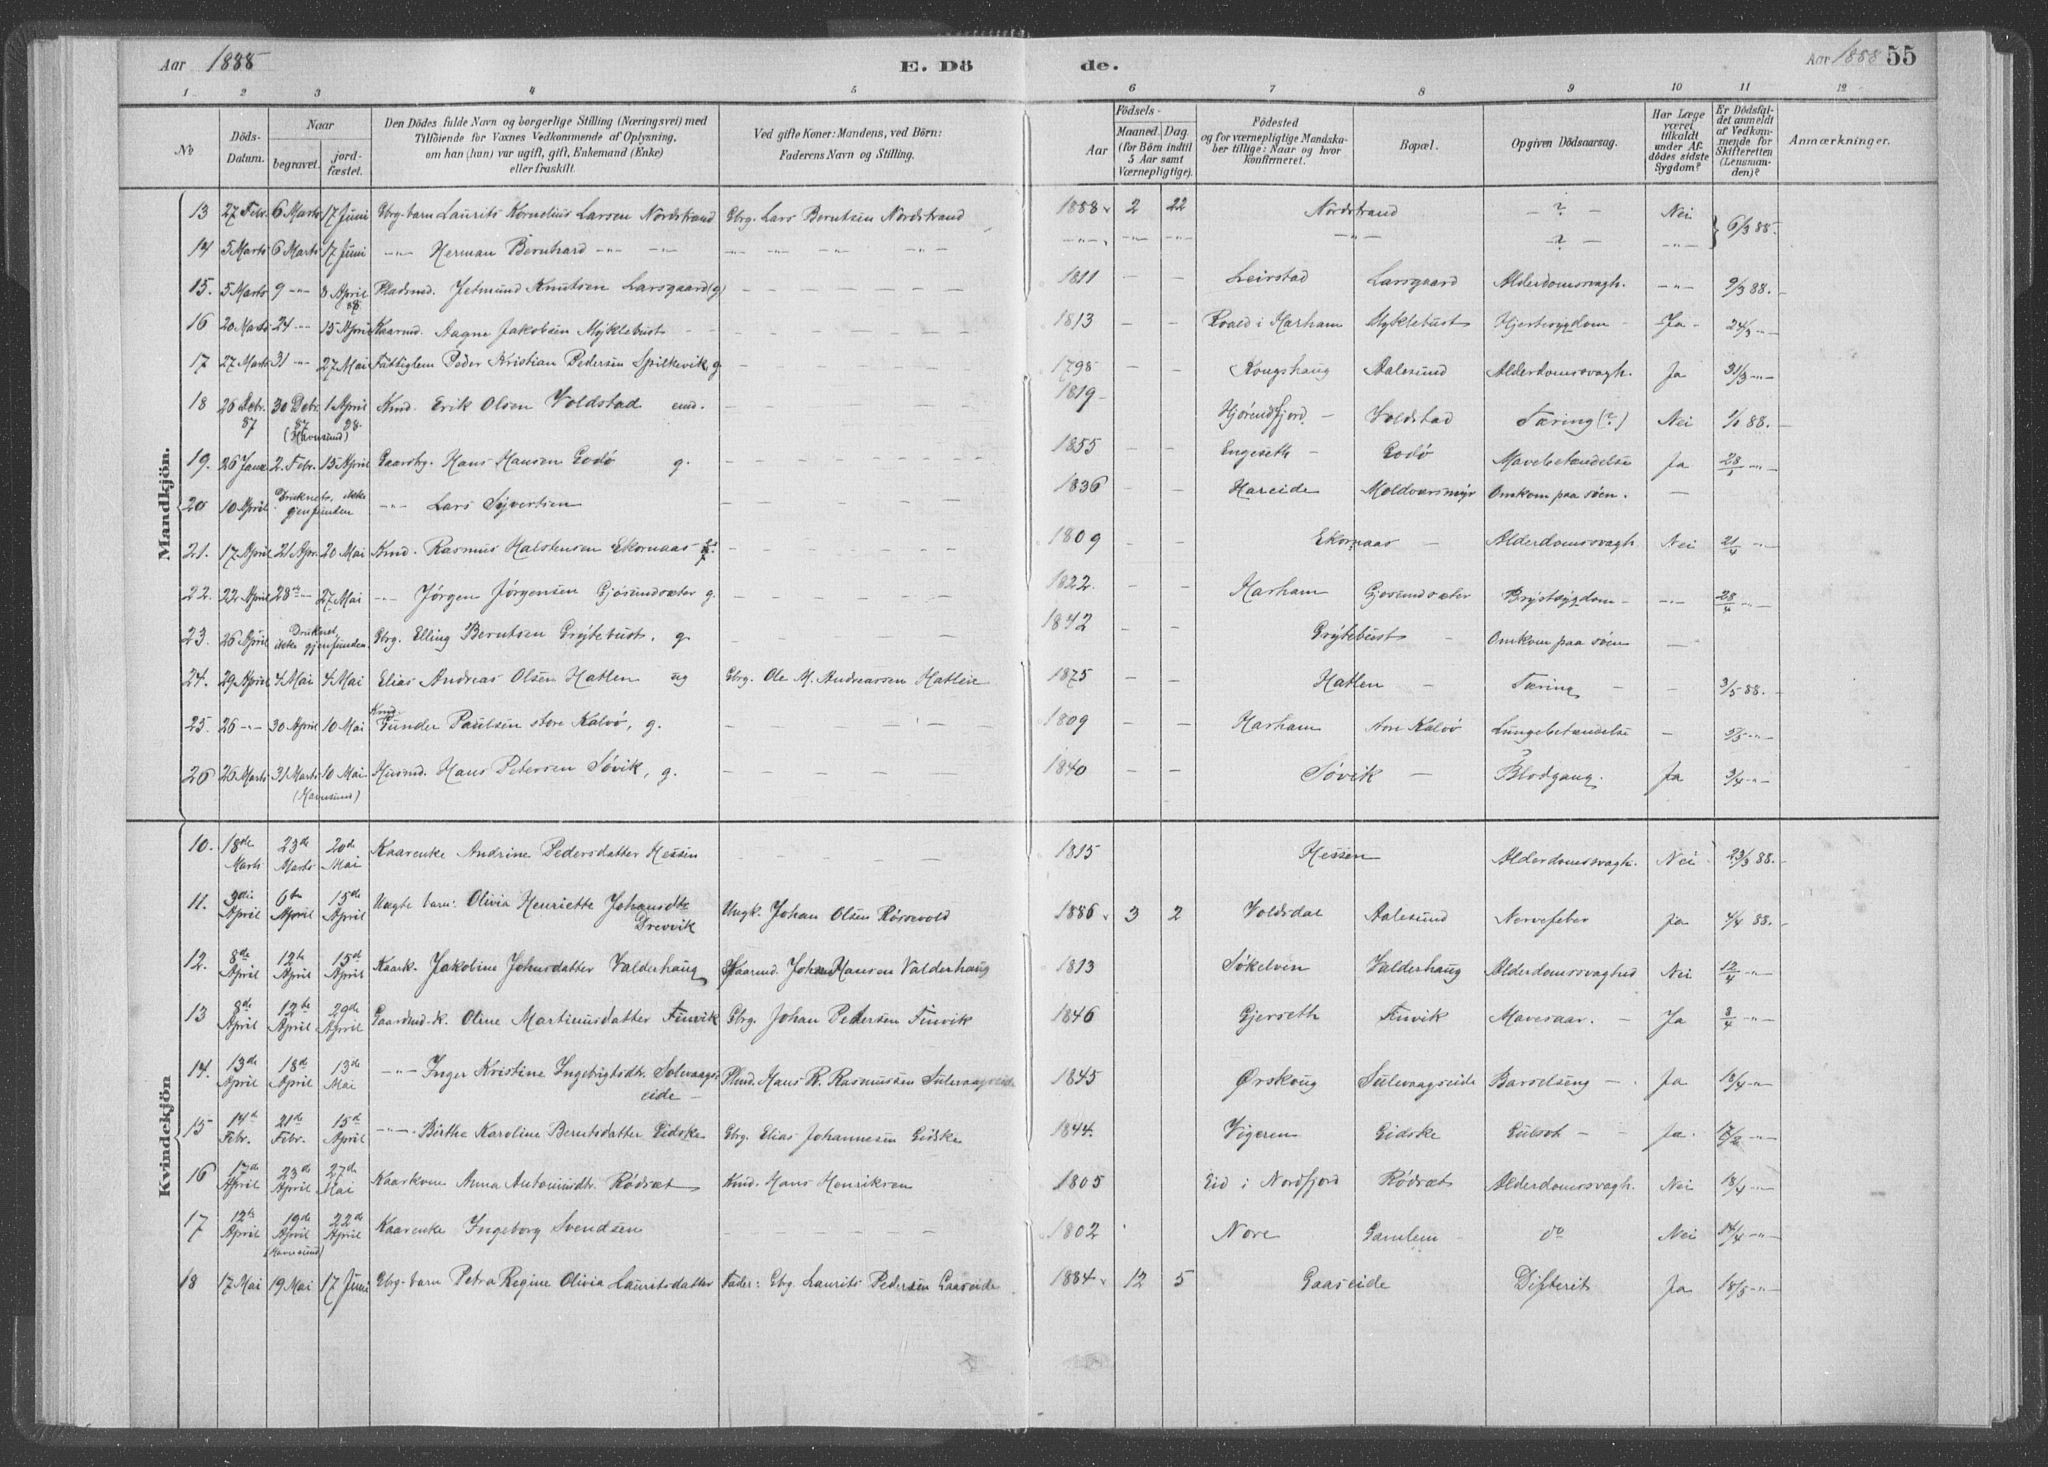 Aar 1888 E. Dö de. Aar 1888 55
1 2 3 4 5 6 7 8 9 10 11 12
No
Döds-Datum.
Naar begravet. jordfæstet.
Den Dödes fulde Navn og borgerlige Stilling (Næringsvei) med Tilföiende for Voxnes Vedkommende af Oplysning, om han (hun) var ugift, gift, Enkemand (Enke) eller fraskilt.
Ved gifte Koner: Mandens, ved Börn: Faderens Navn og Stilling.
Födsels- Aar Maaned. Dag. (for Börn indtil 5 Aar samt Værnepligtige).
Födested og for værnepligtige Mandskaber tillige: Naar og hvor Konfirmeret.
Bopæl.
Opgiven Dödsaarsag.
Har Læge været tilkaldt under Afdödes sidste Sygdom?
Er Dödsfaldet anmeldt af Vedkommende for Skifteretten (Lensmanden)?
Anmærkninger.
Mandkjön.
13 27 Febr. 6 Marts 17 Juni Gbrg. barn Laurits Kornelius Larsen Nordstrand Gbrg. Lars Berntsen Nordstrand 1888 2 22 Nordstrand - ? - Nei 6/3 88.
14 5 Marts 6 Marts 17 Juni -"- Herman Bernhard -"- -"- - ? - -"-
15. 5 Marts 9 -"- 8 April 88 Pladsmd. Jetmund Knutsen Larsgaard (g) 1811 Leirstad Larsgaard Alderdomssvagh. -"- 9/3 88.
16 20 Marts 24 -"- 15 April Kaarmd. Aagne Jakobsen Myklebust 1813 Roald i Harham Myklebust Hjertesygdom Ja 24/3 -"-
17 27 Marts 31 -"- 27 Mai Fattiglem Peder Kristian Pedersen Spilkevik, g. 1798 Kongshaug Aalesund Alderdomssvagh. Ja 31/3 -"-
18 26 Decbr. 87 30 Debr. 87 (Havnsund) 1 April 88. Kmd. Erik Olsen Voldstad emd. 1819 Hjørendfjord Voldstad Tæring (?) Nei 1/1 88.
19. 26 Janr 2. Febr. 15 April Gaardbrg. Hans Hansen Godø g. 1855 Engeseth Godø Mavebetændelse Ja 28/1 -"-
20 10 April Druknet, ikke gjenfunden -"- Lars Syvertsen 1836 Hareide Moldværsmyr Omkom paa søen.
21. 17 April 21 Apr. 20 Mai Kmd. Rasmus Halstensen Ekornaas 1809 Ekornaas Alderdomssvagh Nei 21/4 -"-
22. 22 April 28 -"- 27 Mai -"- Jørgen Jørgensen Gjøsundsæter g. 1822. Harham Gjøsundsæter Brystsygdom -"- 28/4 -"-
23. 26 April Druknet, ikke gjenfunden. Gbrg. Elling Berntsen Grytebust, g. 1842 Grytebust Omkom paa søen
24. 29 April 4 Mai 4 Mai Elias Andreas Olsen Hatlen ug Gbrg. Ole M. Andreassen Hatlen 1875 Hatlen Tæring 3/5 88.
25. 26 -"- 30 April 10 Mai Kmd. Gunder Paulsen store Kalvø, g. 1809 Harham store Kalvø Lungebetændelse
26 26 Marts 31 Marts (Havnsund) 10 Mai Husmd. Hans Petersen Søvik, g. 1840 Søvik Blodgang. Ja 3/4 -"-
Kvindekjön
10. 18de Marts 23de Marts 20de Mai Kaarenke Andrine Pedersdatter Hessen 1815 Hessen Alderdomssvagh. Nei 23/3 88.
11. 3die April 6te April 15de April Uægte barn: Olivia Henriette Johansdtr Drevvik Ungk. Johan Olsen Rørsevold 1886 3 2 Voldsdal Aalesund Nervefeber Ja 4/4 88.
12. 8de April 12te April 15de April Kaark. Jakobine Johnsdatter Valderhaug Kaarmd. Johan Hansen Valderhaug 1813 Søkelven Valderhaug Alderdomssvaghed Nei 12/4 -"-
13 8de April 12te April 29de April Gaardmd.-k. Oline Martinusdatter Finvik Gbrg. Johan Pedersen Finvik 1846 Gjerseth Finvik Mavesaar. Ja 8/4 -"-
14. 13de April 18de April 13de Mai -"- Inger Kristine Ingebrigtsdtr. Solevaagseide Plmd. Hans R. Rasmussen Sulevaagseide 1845 Ørskoug Sulevaagseide Barselseng Ja 18/4 -"-
15 14de Febr. 21de Febr. 15de April -"- Birthe Karoline Berntsdatter Gidske Gbrg. Elias Johannesen Gidske 1844. Vigeren Gidske Gulsot Ja. 17/2 -"-
16 17de April 23de April 27de Mai Kaarkone Anna Antonsdtr. Rødsæt Kmd. Hans Henriksen 1805 Eid i Nordfjord Rødsæt Alderdomssvagh. Nei 18/4 -"-
17 12te April 19de April (Havnsund) 22de April Kaarenke Ingeborg Svendsen 1802 Nore Gamlem do Nei 14/4 -"-
18 17 Mai 19 Mai 17 Juni Gbrg-barn Petra Regine Olivia Lauritsdatter Fader: Gbrg. Laurits Pedersen Gaaseide 1884 12 5 Gaaseide Difterit Ja 18/5 -"-